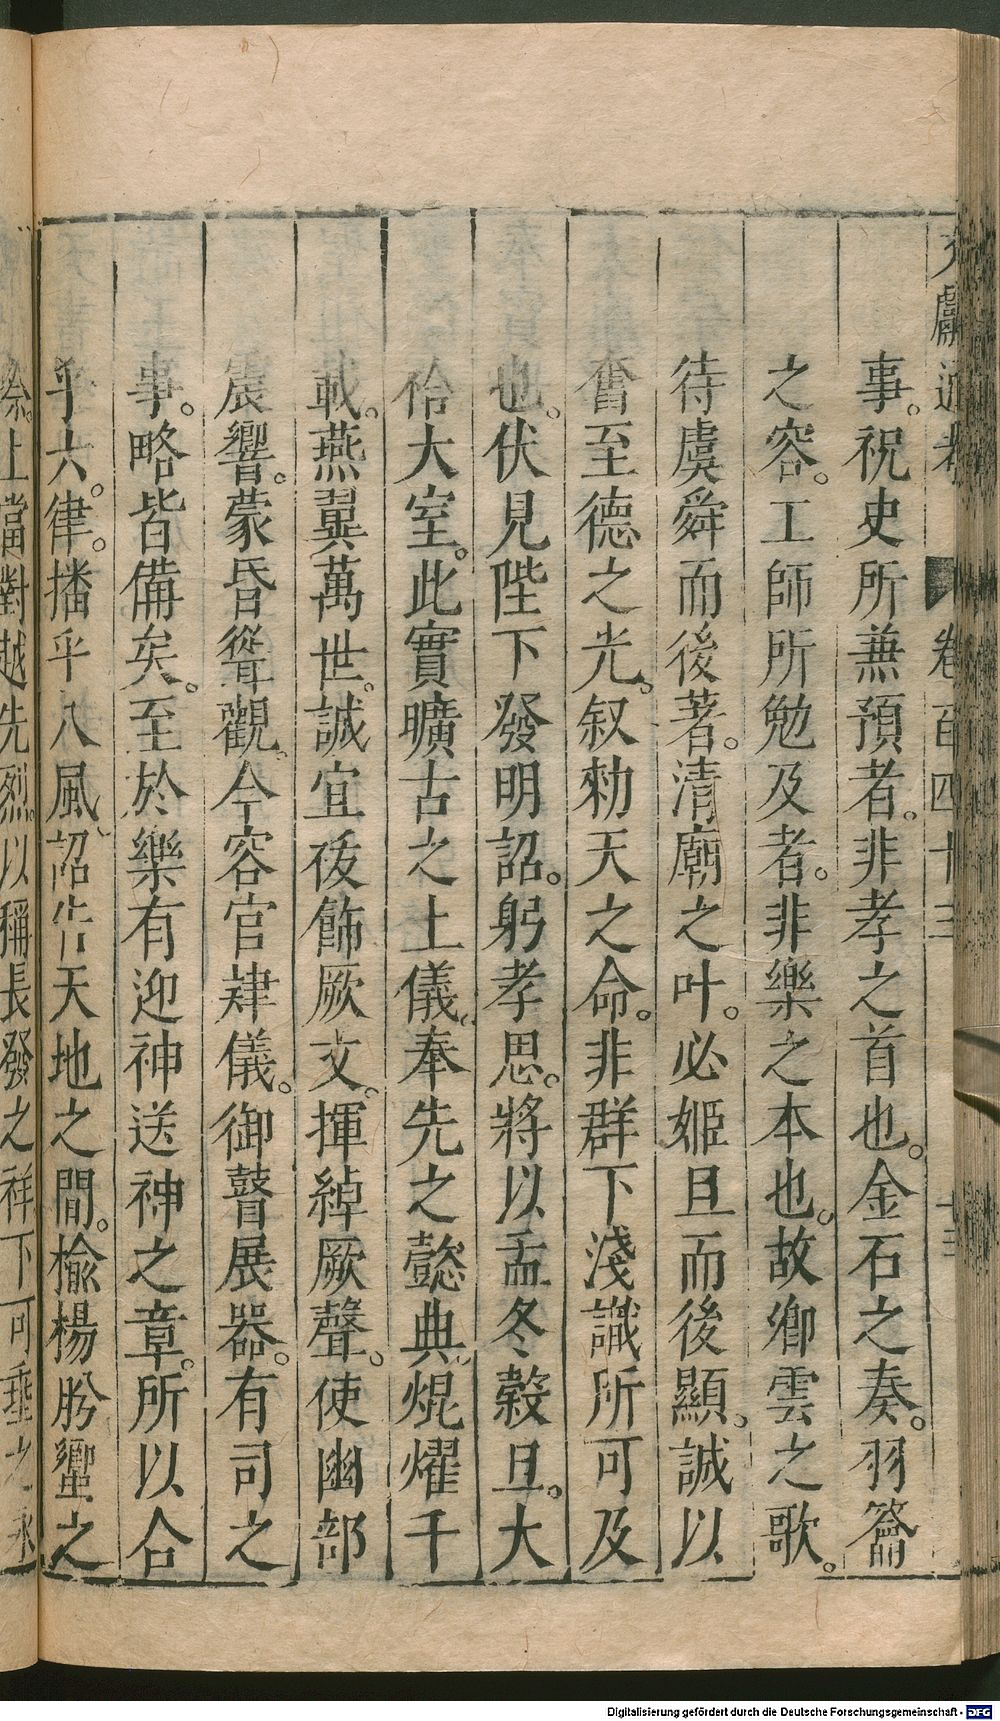 文獻通考 卷百四十三 十三
事。祝史所兼預者。非孝之首也。金石之奏。羽籥
之容。工師所勉及者。非樂之本也。故卿雲之歌。
待虞舜而後著。清廟之叶。必姬旦而後顯。誠以
奮至德之光。叙勑天之命。非群下淺識所可及
也。伏見陛下發明詔。躬孝思。將以孟冬穀旦。大
祫大室。此實曠古之上儀。奉先之懿典。焜燿千
載。燕翼萬世。誠宜茷飾厥文。揮綽厥聲。使幽部
震響。蒙昏聳觀。今容官肄儀。御瞽展器。有司之
事。略皆備矣。至於樂有迎神送神之章。所以合
乎六。律。播乎八風、詔告天地之間。揄楊肹蠁之
際。上當對越先烈。以稱長發之祥下可垂之
Digitalisierung gefördert durch die Deutsche Forschungsgemeinschaft - DFG